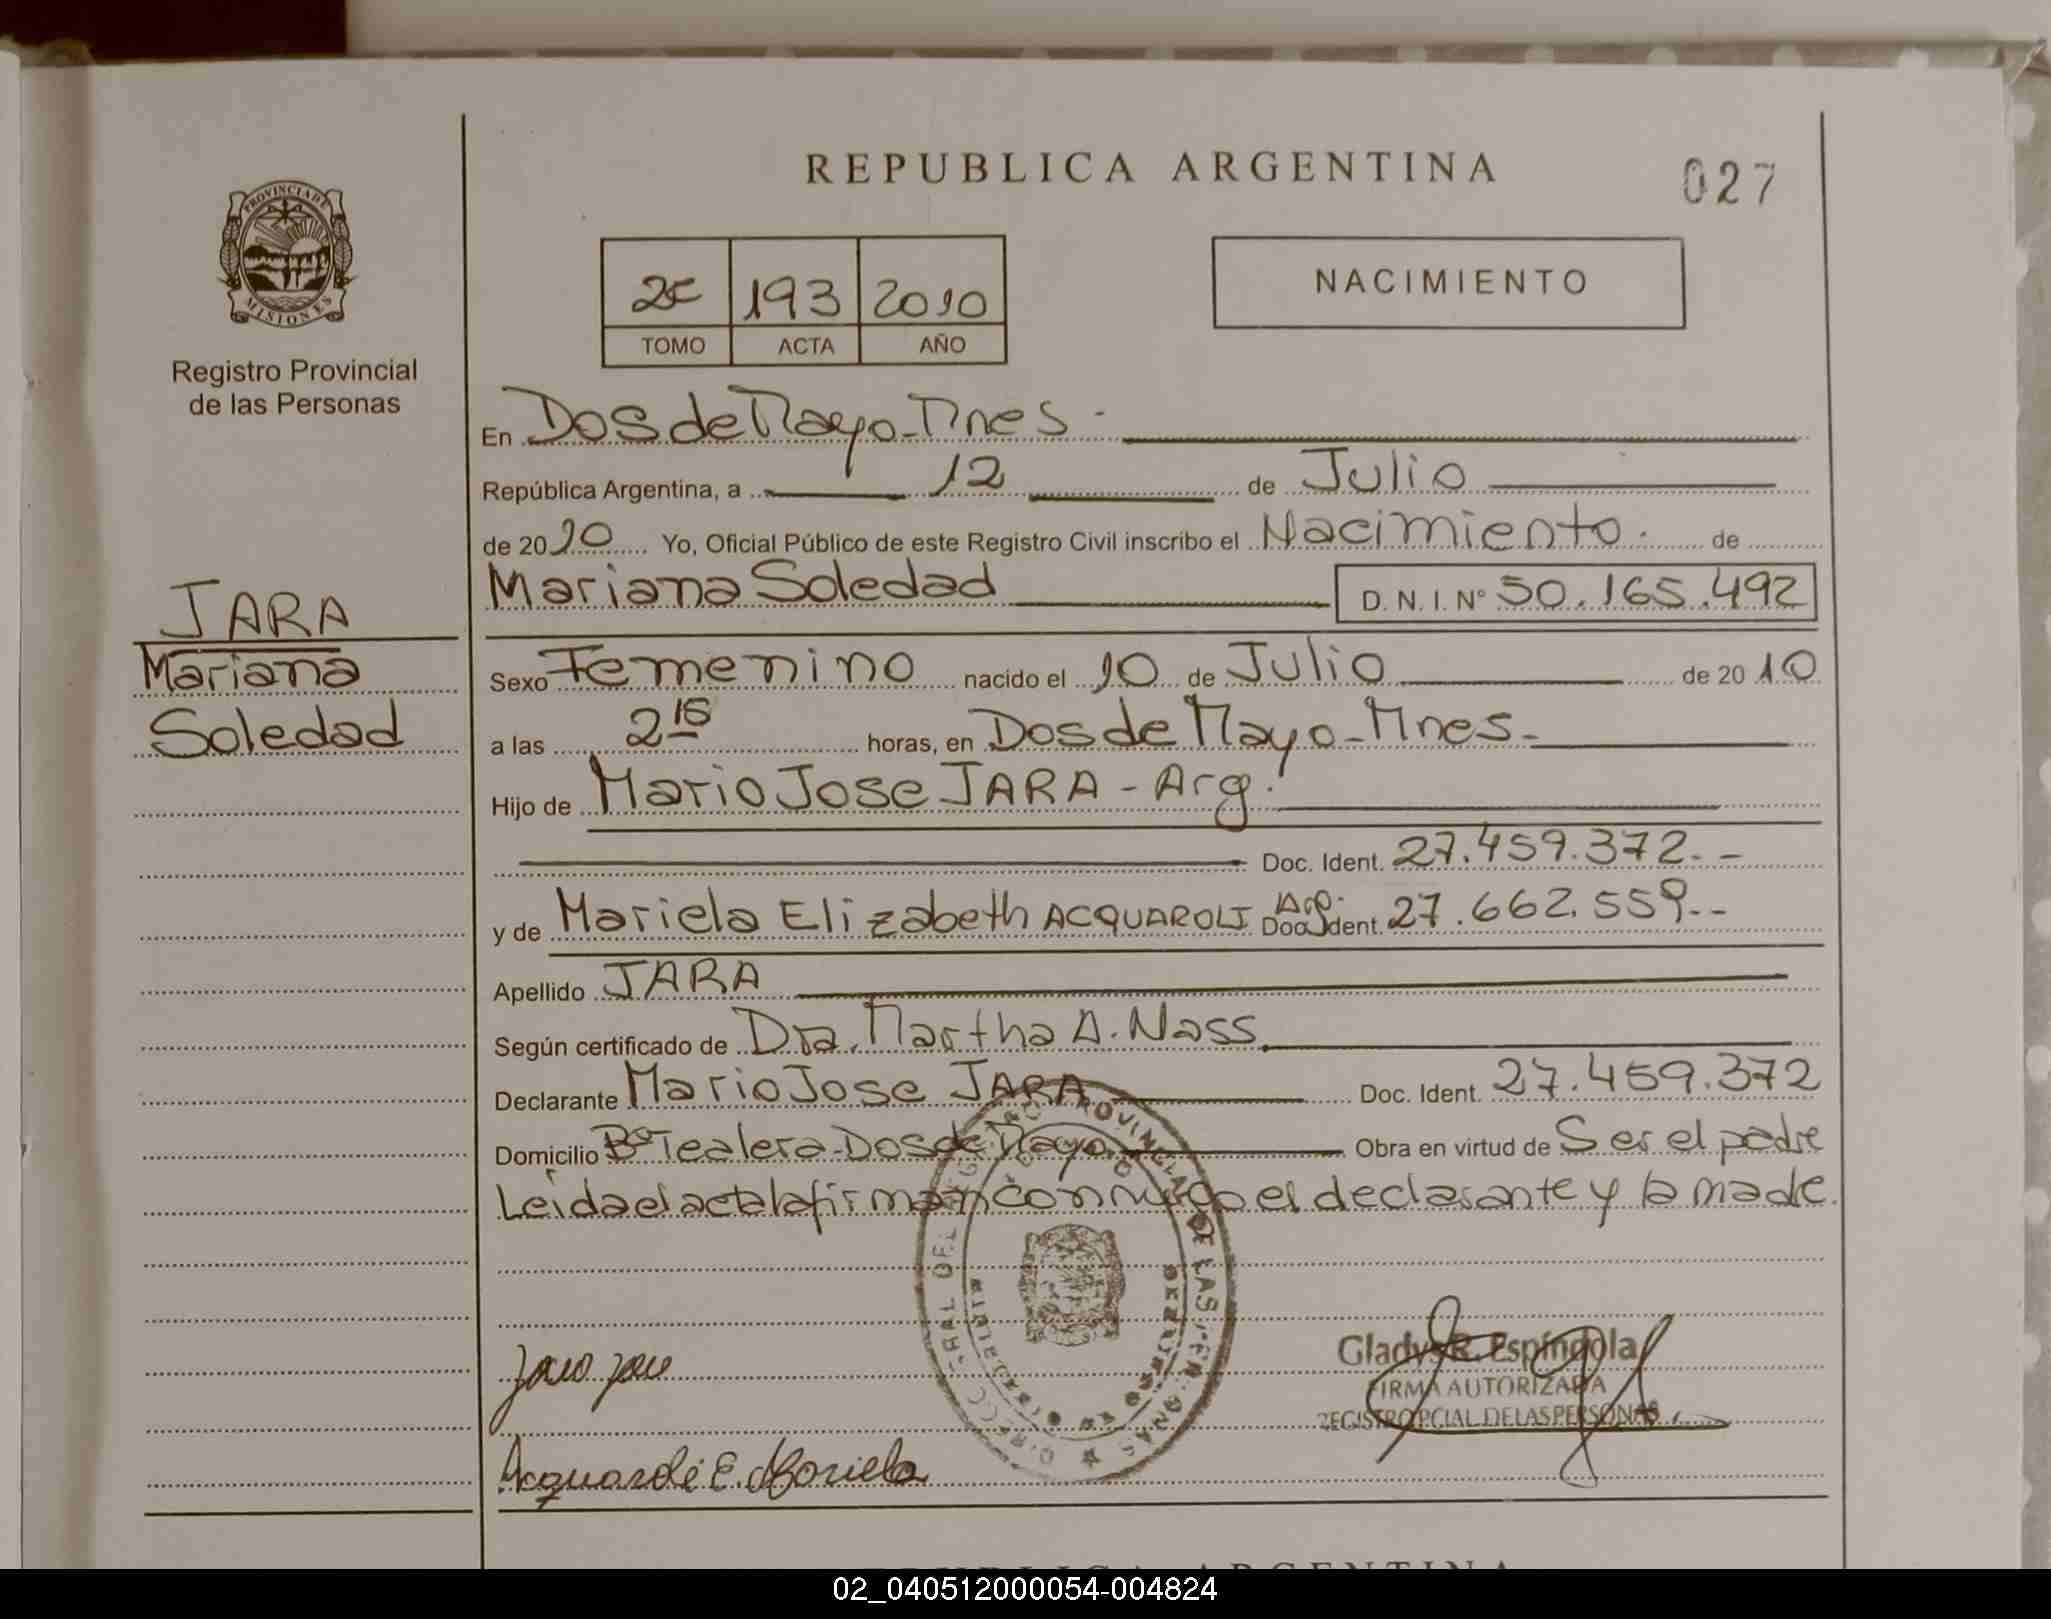 REPUBLICA ARGENTINA
027
PROVINCIA DE
MISIONES
Registro Provincial
de las Personas
2c 193 2010
TOMO ACTA AÑO
NACIMIENTO
En Dos de Mayo - Mnes -
República Argentina, a 12 de Julio
de 2010 Yo, Oficial Público de este Registro Civil inscribo el Nacimiento. de
Mariana Soledad D. N. I. N° 50.165.492
JARA
Mariana
Soledad
Sexo Femenino nacido el 10 de Julio de 2010
a las 2 15 horas, en Dos de Mayo - Mnes -
Hijo de Mario Jose JARA - Arg.
Doc. Ident. 27.459.372. -
y de Mariela Elizabeth ACQUAROLI Arg. Doc. Ident. 27.662.559. --
Apellido JARA
Según certificado de Dra. Martha A. Nass
Declarante Mario Jose JARA Doc. Ident. 27.459.372
Domicilio Bº Tealera - Dos de Mayo Obra en virtud de Ser el padre
Leida el acta la firman conmigo el declarante y la madre.
Gladys R. Espíndola
FIRMA AUTORIZADA
REGISTRO PCIAL. DE LAS PERSONAS
Acquaroli E. Mariela
REPUBLICA ARGENTINA
02_040512000054-004824